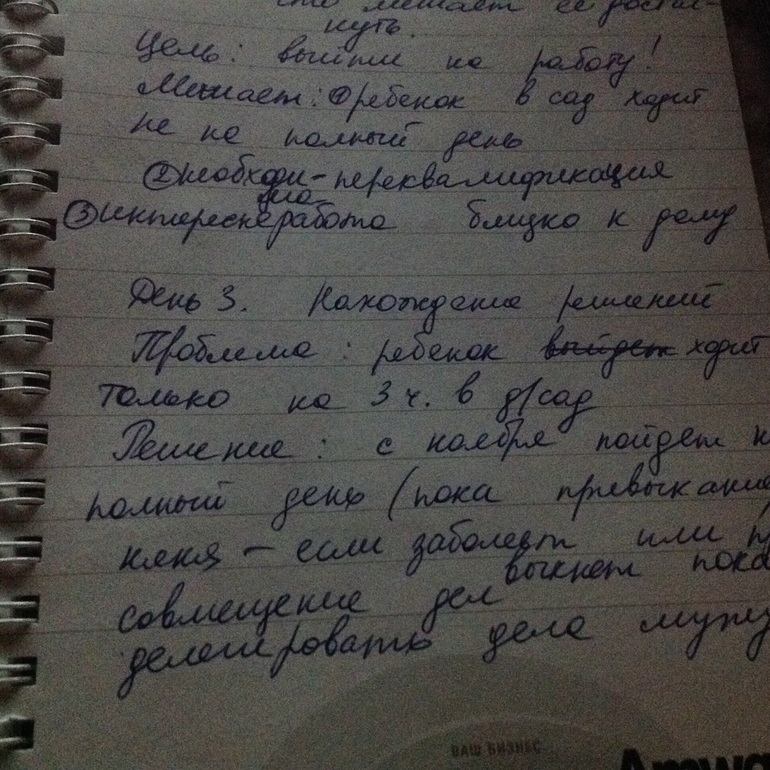 что мешает ее достиг-
нуть.
Цель: выйти на работу!
Мешает: ① ребенок в сад ходит
не на полный день
② необходи- переквалификация
ма
③ интересная работа близко к дому
День 3. Нахождение решений
Проблема: ребенок выйдет ходит
только на 3 ч. в д/сад
Решение: с ноября пойдет н
полный день (пока привыкание)
няня – если заболеет или п
выкнет пока
совмещение дел
делегировать дела мужу
ВАШ БИЗНЕС
Amwa